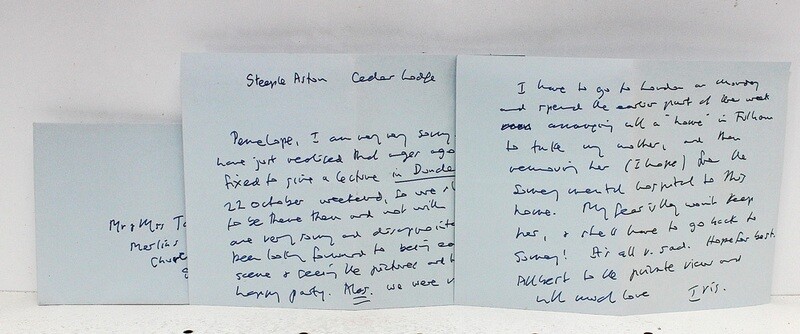 Mr & Mrs
Merlins
Church
Steeple Aston Cedar Lodge
Penelope, I am very very sorry
have just realised that ages ago
fixed to give a lecture in Dunde
22 october weekend, so we
to be there then and not with
are very sorry and disappointe
been looking forward to being
scene & seeing the pictures and
happy party. Alas. we were
I have to go to London on Monday
and spend the earlier part of the week
arranging with a "home" in Fulham
to take my mother, and then
removing her (I hope) from the
Surrey mental hospital to this
home. My fear is they won't keep
her, & she'll have to go back to
Surrey! It's all v. sad. Hope for best.
All best to the private view and
with much love Iris.